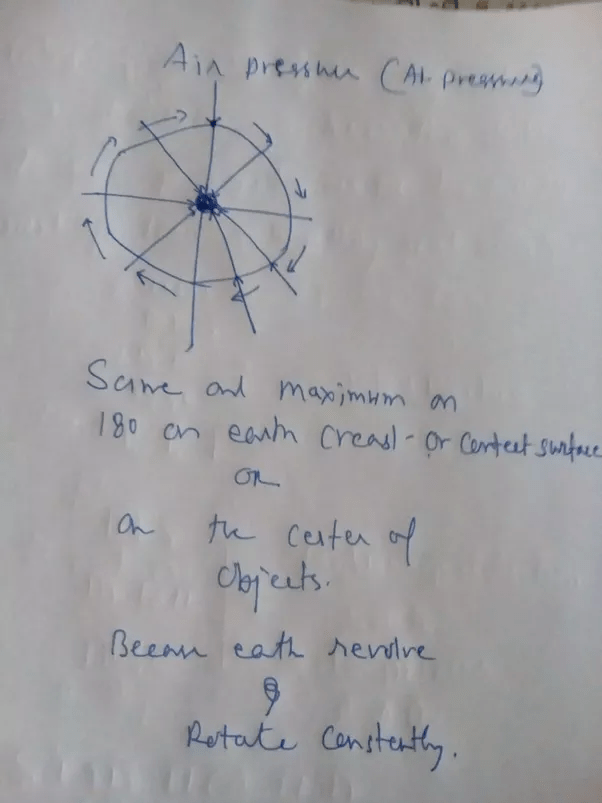 Air pressure (At. pressure)
Same and maximum on
180 on earth (reast - or contect surface
or
on the center of
objects.
Becau eath revolve
&
Rotate constently.